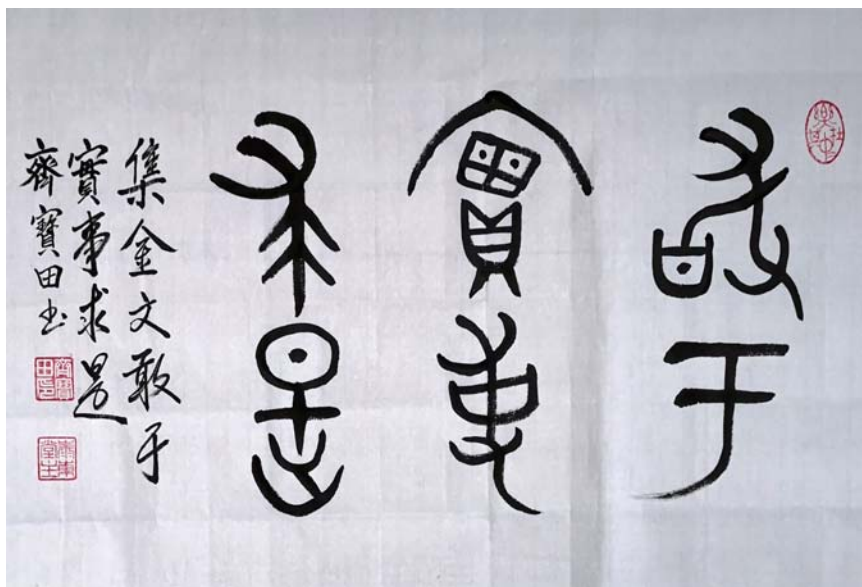 敢于
實事
求是
集金文敢于
實事求是
齊寶田书